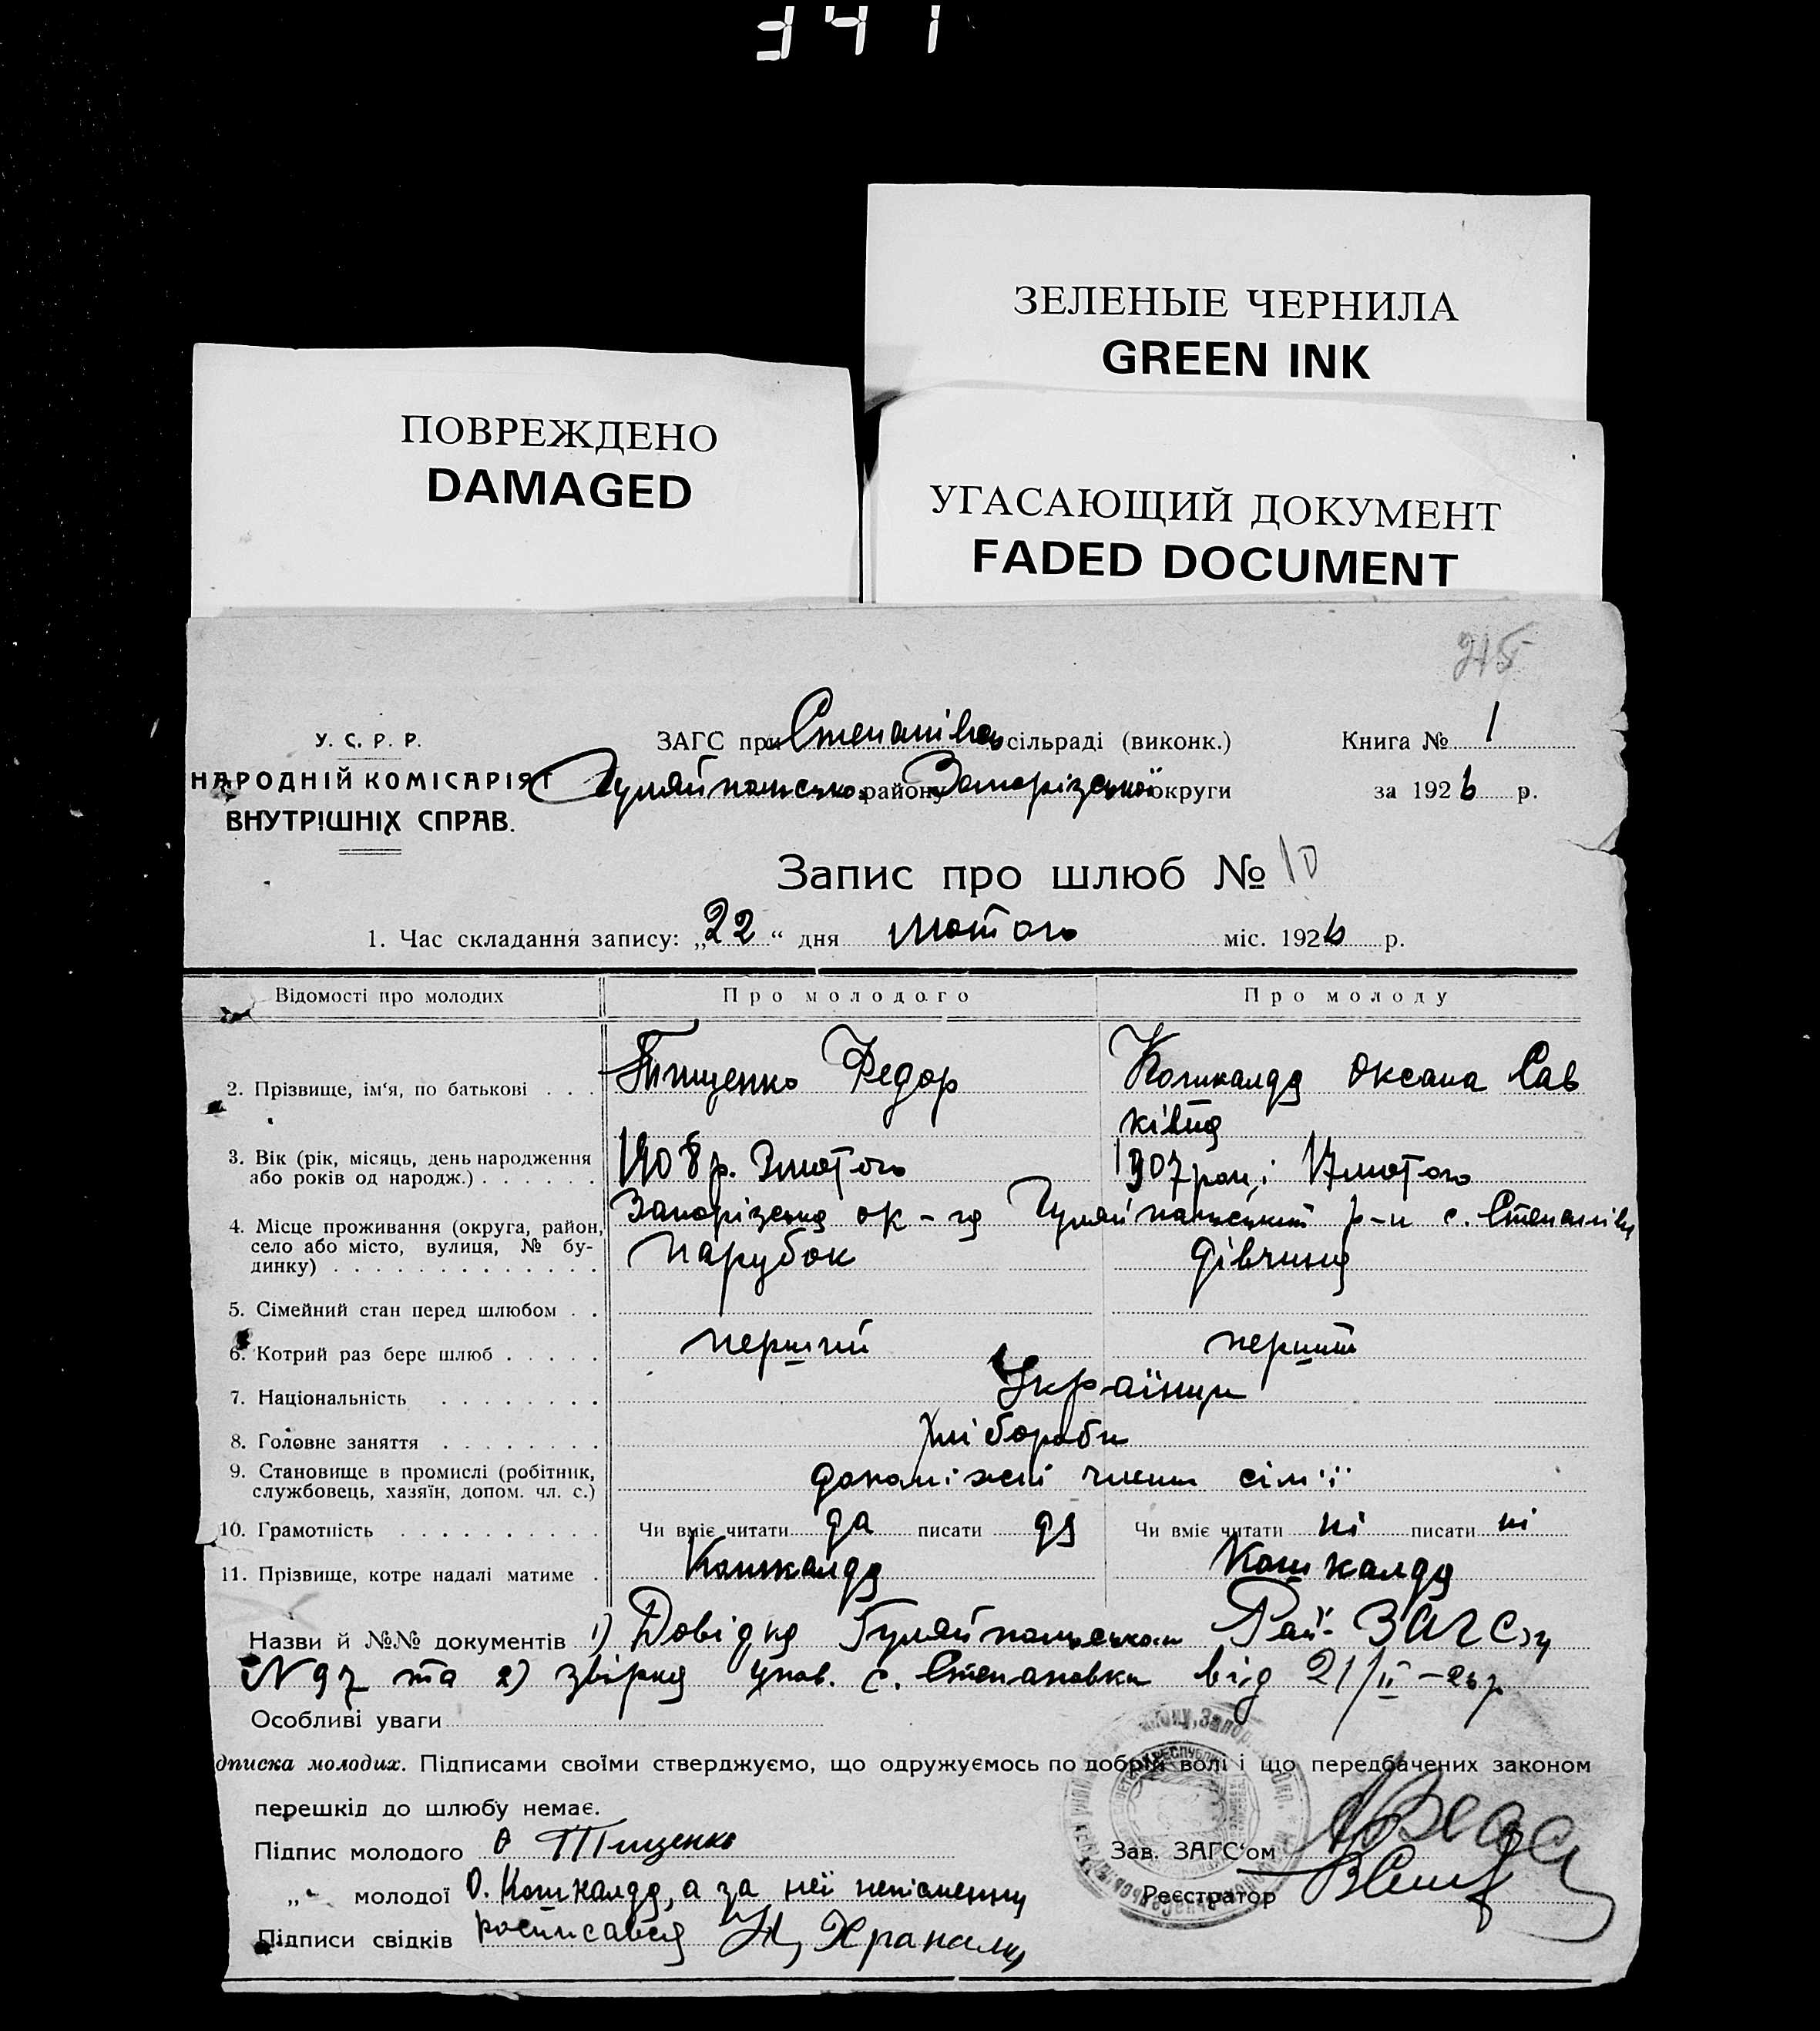 341
ЗЕЛЕНЫЕ ЧЕРНИЛА
GREEN INK
ПОВРЕЖДЕНО
DAMAGED
УГАСАЮЩИЙ ДОКУМЕНТ
FADED DOCUMENT
У. С. Р. Р.
НАРОДНІЙ КОМІСАРІЯТ
ВНУТРІШНІХ СПРАВ.
ЗАГС при Степанівсь сільраді (виконк.)
Гуляйпольсько району Запорізської округи
Книга № 1
за 1926 р.
Запис про шлюб № 10
1. Час складання запису: „22“ дня лютого міс. 1926 р.
Відомості про молодих Про молодого Про молоду
2. Прізвище, ім‘я, по батькові . . . Тищенко Федор Кошкалда Оксана Сав
ківна
3. Вік (рік, місяць, день народження
або років од народж.) . . . . . . 1908 р. 3 лютого 1907 році 17 лютого
4. Місце проживання (округа, район,
село або місто, вулиця, № бу-
динку) . . . . . . . . . . . . . Запорізська ок-га Гуляйпольський р-н с. Степанівц
парубок дівчина
5. Сімейний стан перед шлюбом . .
6. Котрий раз бере шлюб . . . . . перший перший
7. Національність . . . . . . . . Українци
8. Головне заняття . . . . . . . . хлібороби
9. Становище в промислі (робітник,
службовець, хазяїн, допом. чл. с.) допоміжні члени сім'ії
10. Грамотність . . . . . . . . . . Чи вміє читати да писати да Чи вміє читати ні писати ні
11. Прізвище, котре надалі матиме . Кошкалда Кошкалда
Назви й №№ документів 1) Довідка Гуляйпольського Рай-ЗАГСу
N 97 та 2) звірка упов. с. Степановки від 21/II-26 р
Особливі уваги
дписка молодих. Підписами своїми стверджуємо, що одружуємось по добрій волі і що передбачених законом
перешкід до шлюбу немає.
Підпис молодого Тищенко
Зав. ЗАГС‘ом
„ молодої О. Кошкалда, а за неї неписменну
Реєстратор
Підписи свідків росписався